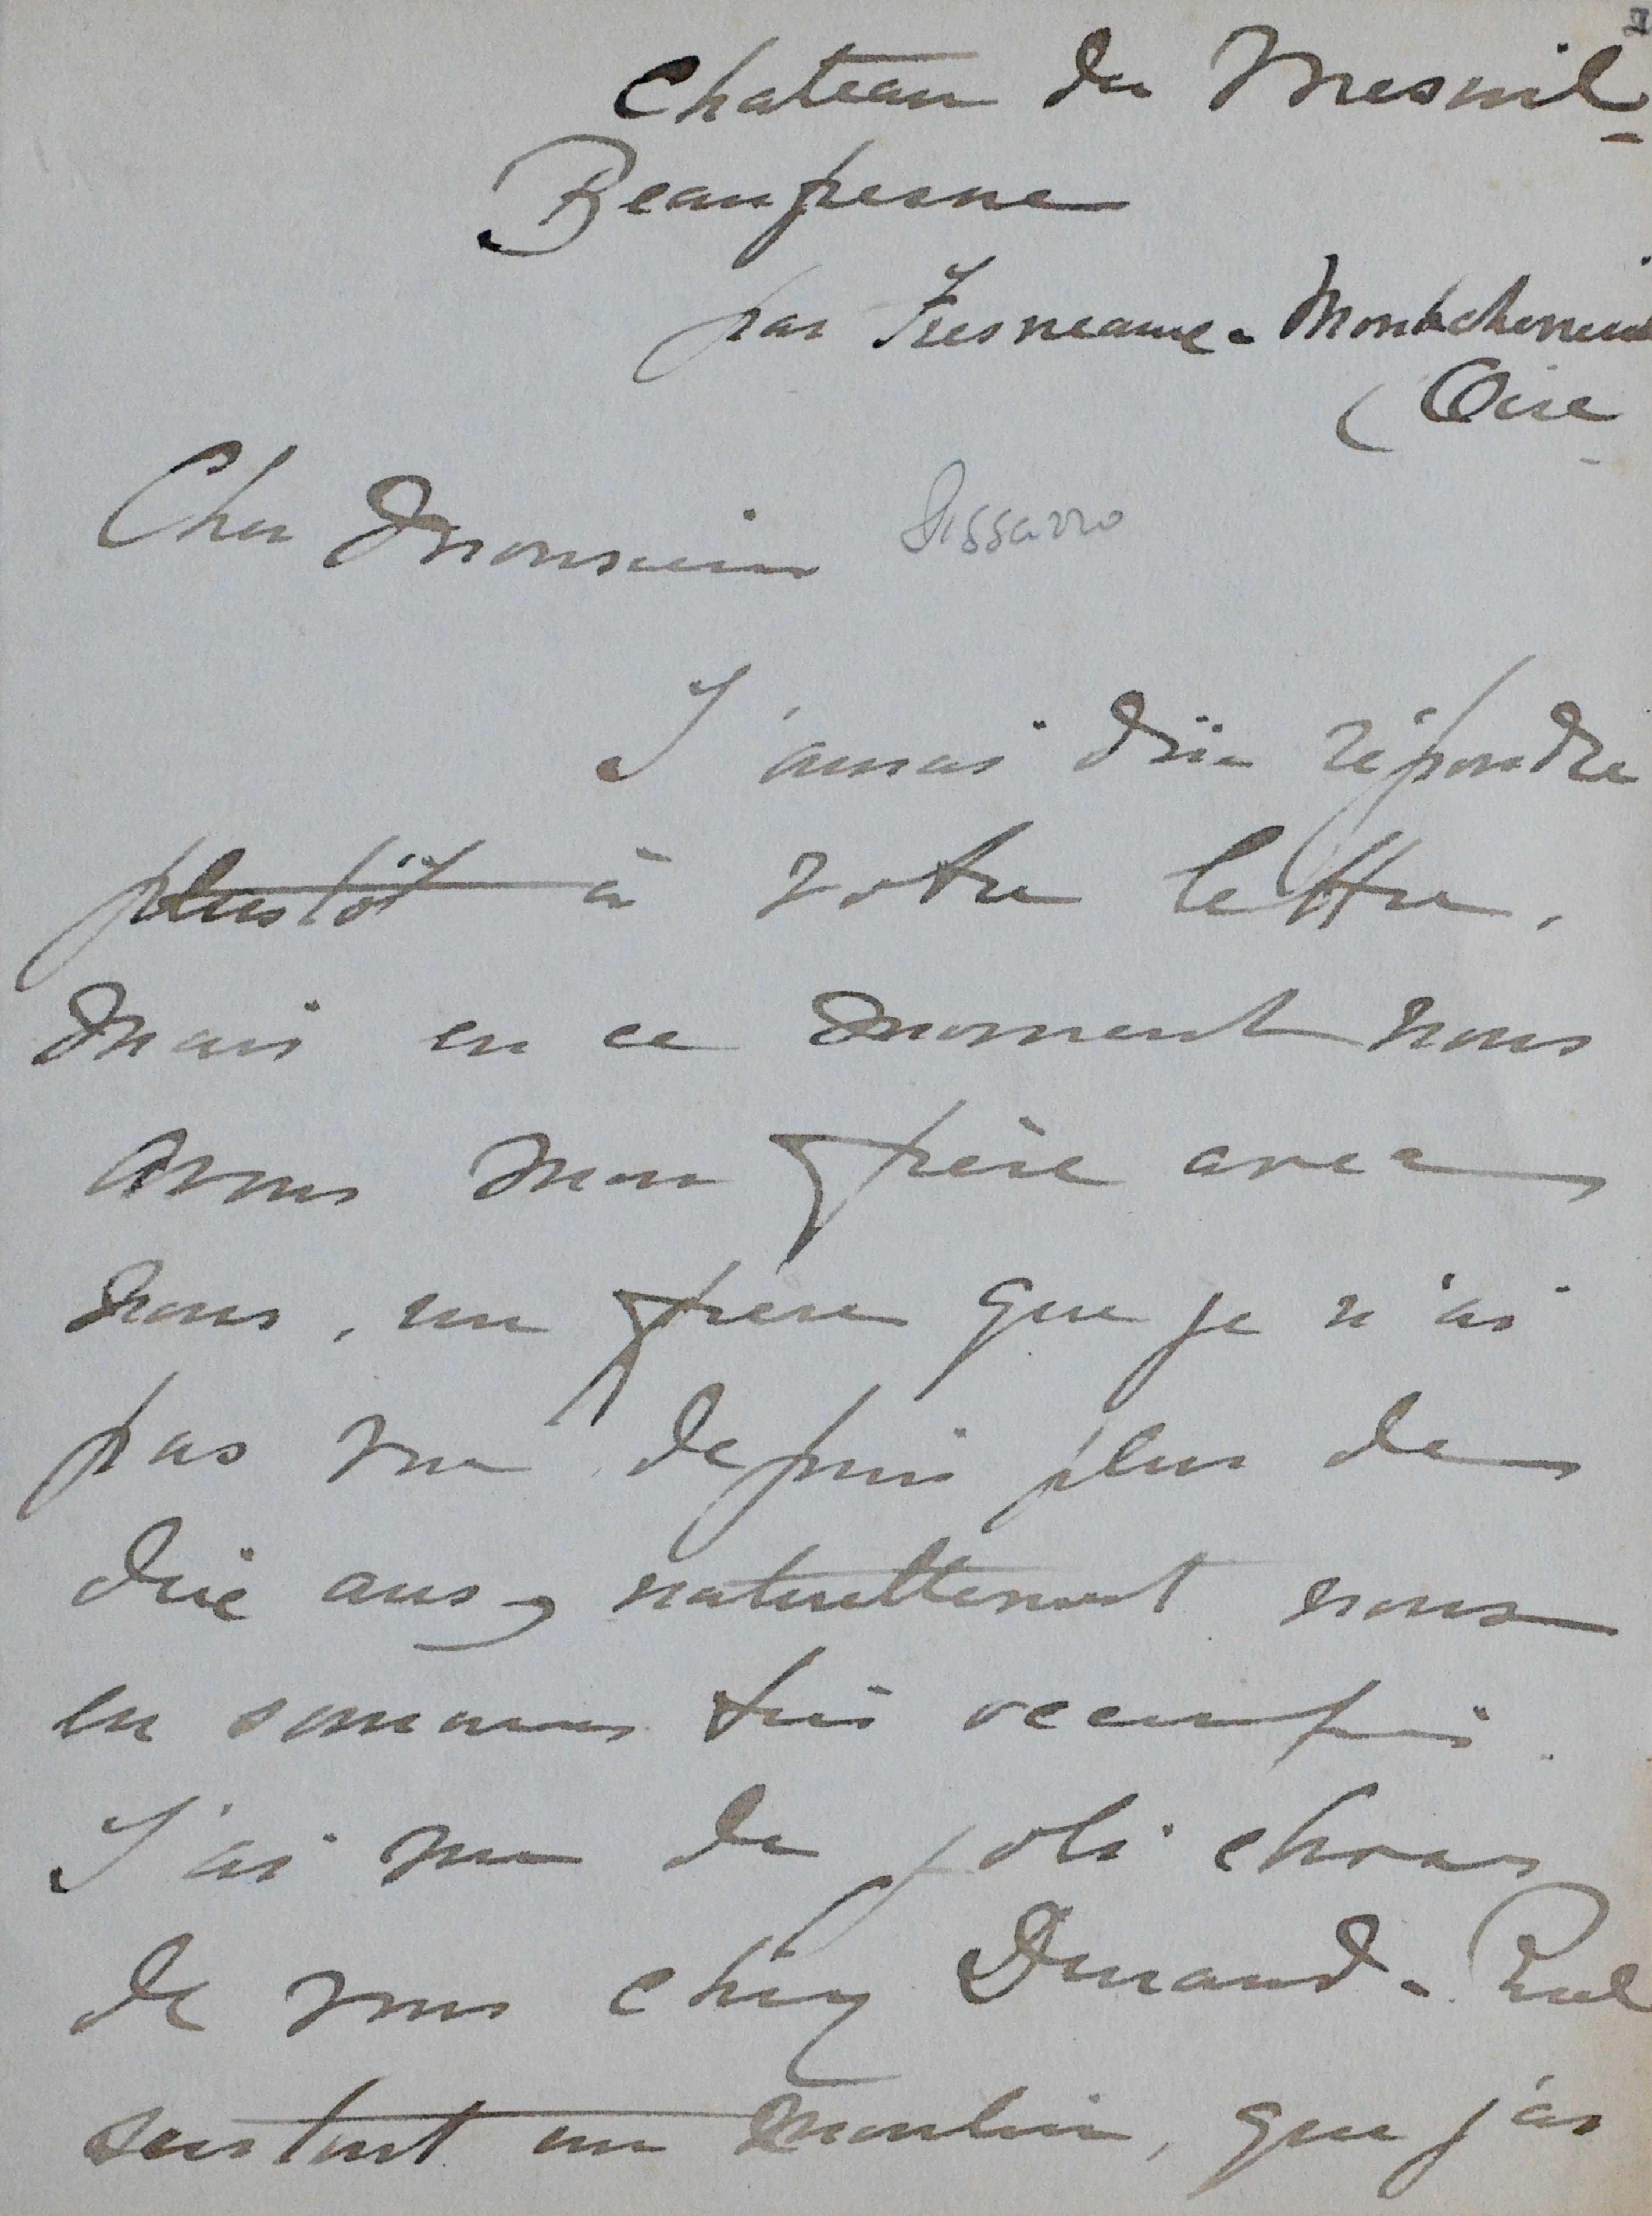 2
Chateau du Mesnil-
Beaufresne
par Fresneaux-Montchevreuil
(Oise
Cher Monsieur Pissarro
J'aurai dûe répondre
plustôt à votre lettre.
Mais en ce moment nous
avons mon frère avec
nous, un frère que je n'ai
pas vu depuis plus de
dix ans, naturellement nous
en sommes très occupés.
J'ai vu de joli choses
de vous chez Durand-Ruel
surtout un Moulin, que j'ai